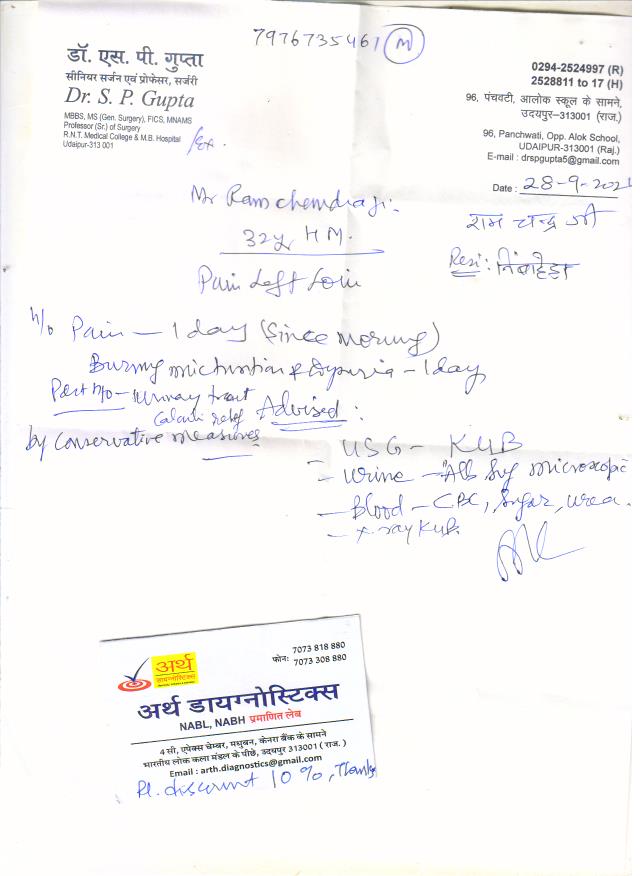 7976735461 M
डॉ. एस. पी. गुप्ता
सीनियर सर्जन एवं प्रोफेसर, सर्जरी
Dr. S. P. Gupta
MBBS, MS (Gen. Surgery), FICS, MNAMS
Professor (Sr.) of Surgery
R.N.T. Medical College & M.B. Hospital
Udaipur-313 001
/Ex.
0294-2524997 (R)
2528811 to 17 (H)
96, पंचवटी, आलोक स्कूल के सामने,
उदयपुर-313001 (राज.)
96, Panchwati, Opp. Alok School,
UDAIPUR-313001 (Raj.)
E-mail : drspgupta5@gmail.com
Date : 28-9-2021
Mr Ram chendra Ji.
राम चन्द्र जी
32yr HM.
Resi : निंबाहेडा
Pain Left Loin
h/o Pain - 1 day (Since Morning)
Burning micturition & Dysuria - 1 day
Past h/o - urinary tract
Calculi relief
by Conservative measures
Advised :
- USG - KUB
- Urine - Alb Sug microscopic
- Blood - CBC, Sugar, urea.
- X-ray KUB.
अर्थ
डायग्नोस्टिक्स
7073 818 880
फोनः 7073 308 880
अर्थ डायग्नोस्टिक्स
NABL, NABH प्रमाणित लेब
4 सी, एपेक्स चेम्बर, मधुबन, केनरा बैंक के सामने
भारतीय लोक कला मंडल के पीछे, उदयपुर 313001 ( राज. )
Email : arth.diagnostics@gmail.com
Pl. discount 10 %, Thanks